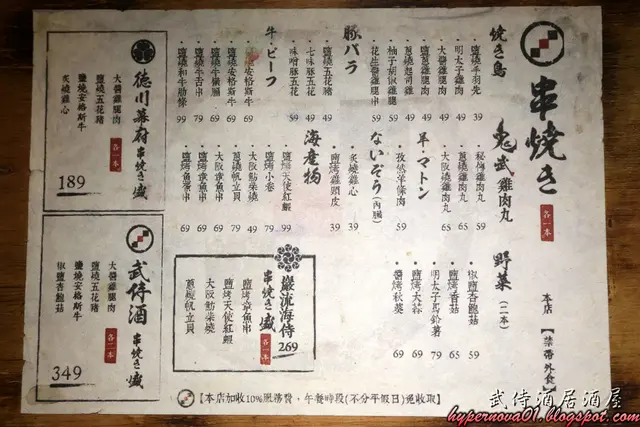 串焼き
各一本
本店【禁帶外食】
焼き鳥
鹽燒手羽先 39
明太子雞肉 49
大醬雞腿肉 49
鹽蔥雞腿肉 49
蔥燒起司雞 49
柚子胡椒雞腿
花生醬雞腿串 59
豚バラ
鹽燒五花豬 49
七味豚五花 49
味噌豚五花 59
牛・ビーフ
安格斯牛 69
鹽燒安格斯牛 69
鹽燒牛橫膈 69
鹽燒牛舌串
鹽燒和牛肋條 99
鬼武雞肉丸
秘傳雞肉丸 65
蔥燒雞肉丸 65
大阪燒雞肉丸 65
羊・マトン
孜然羊條肉 59
ないぞう(內臟)
炙燒雞心 39
鹽烤雞頭皮 39
海産物
鹽烤天使紅蝦 99
鹽烤小卷 79
大阪魷柴燒 49
蔥燒帆立貝 79
鹽烤章魚串 69
鹽烤魚蛋串 69
野菜(二本)
椒鹽杏鮑菇 59
鹽烤香菇 65
明太子馬鈴薯 79
鹽烤大蒜 69
醬烤秋葵 69
巖流海侍
串焼き盛
各一本
269
鹽烤章魚串
鹽烤天使紅蝦
大阪魷柴燒
蔥燒帆立貝
徳川幕府
串焼き盛
各一本
大醬雞腿肉
鹽燒五花豬
鹽燒安格斯牛
炙燒雞心
189
武侍酒
串焼き盛
各二本
大醬雞腿肉
鹽燒五花豬
鹽燒安格斯牛
椒鹽杏鮑菇
349
【本店加收10%服務費,午餐時段(不分平假日)免收取】
武侍酒居酒屋
hypernova01.blogspot.com